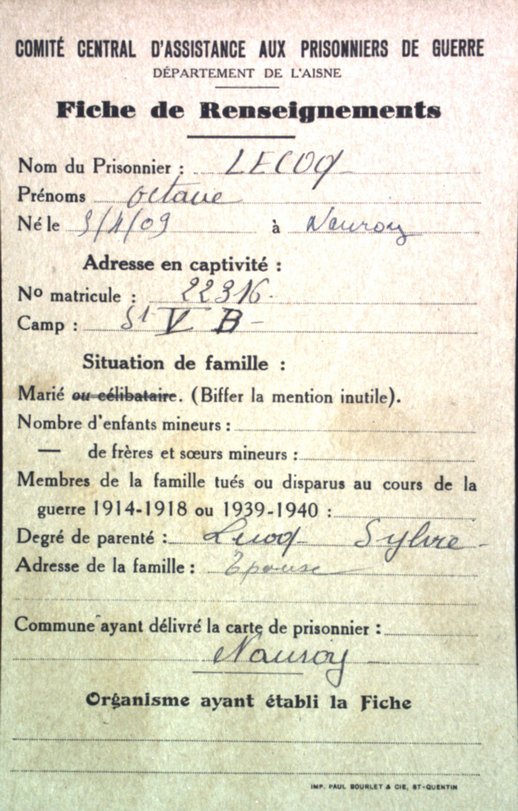 COMITÉ CENTRAL D'ASSISTANCE AUX PRISONNIERS DE GUERRE
DÉPARTEMENT DE L'AISNE
Fiche de Renseignements
Nom du Prisonnier : LECOQ
Prénoms octave
Né le à Nauroy
Adresse en captivité :
No matricule : 22316
Camp : V B
Situation de famille :
Marié ou célibataire. (Biffer la mention inutile).
Nombre d'enfants mineurs :
— de frères et sœurs mineurs :
Membres de la famille tués ou disparus au cours de la
guerre 1914-1918 ou 1939-1940 :
Degré de parenté : Lecoq Sylvie
Adresse de la famille : Epouse
Commune ayant délivré la carte de prisonnier :
Nauroy
Organisme ayant établi la Fiche
IMP. PAUL BOURLET & CIE, ST-QUENTIN